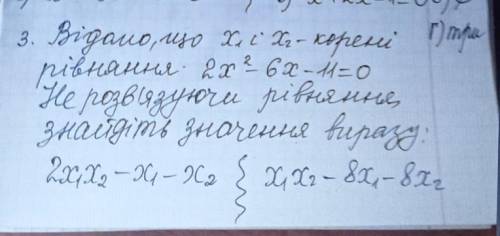 3. Відомо, що x₁ і x₂ - корені
рівняння 2x² - 6x - 11 = 0
Не розв'язуючи рівняння,
знайдіть значення виразу:
2x₁x₂ - x₁ - x₂ } x₁x₂ - 8x₁ - 8x₂